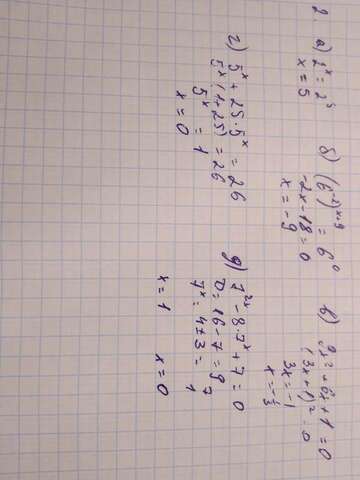 2.
а) 2ˣ = 2⁵
x = 5
б) (6⁻²)ˣ⁺⁹ = 6⁰
-2x - 18 = 0
x = -9
в) 9x² + 6x + 1 = 0
(3x + 1)² = 0
3x = -1
x = -1/3
г) 5ˣ + 25 · 5ˣ = 26
5ˣ (1 + 25) = 26
5ˣ = 1
x = 0
д) 7²ˣ - 8 · 7ˣ + 7 = 0
D = 16 - 7 = 9
7ˣ = 4 ± 3 = 7
1
x = 1 x = 0